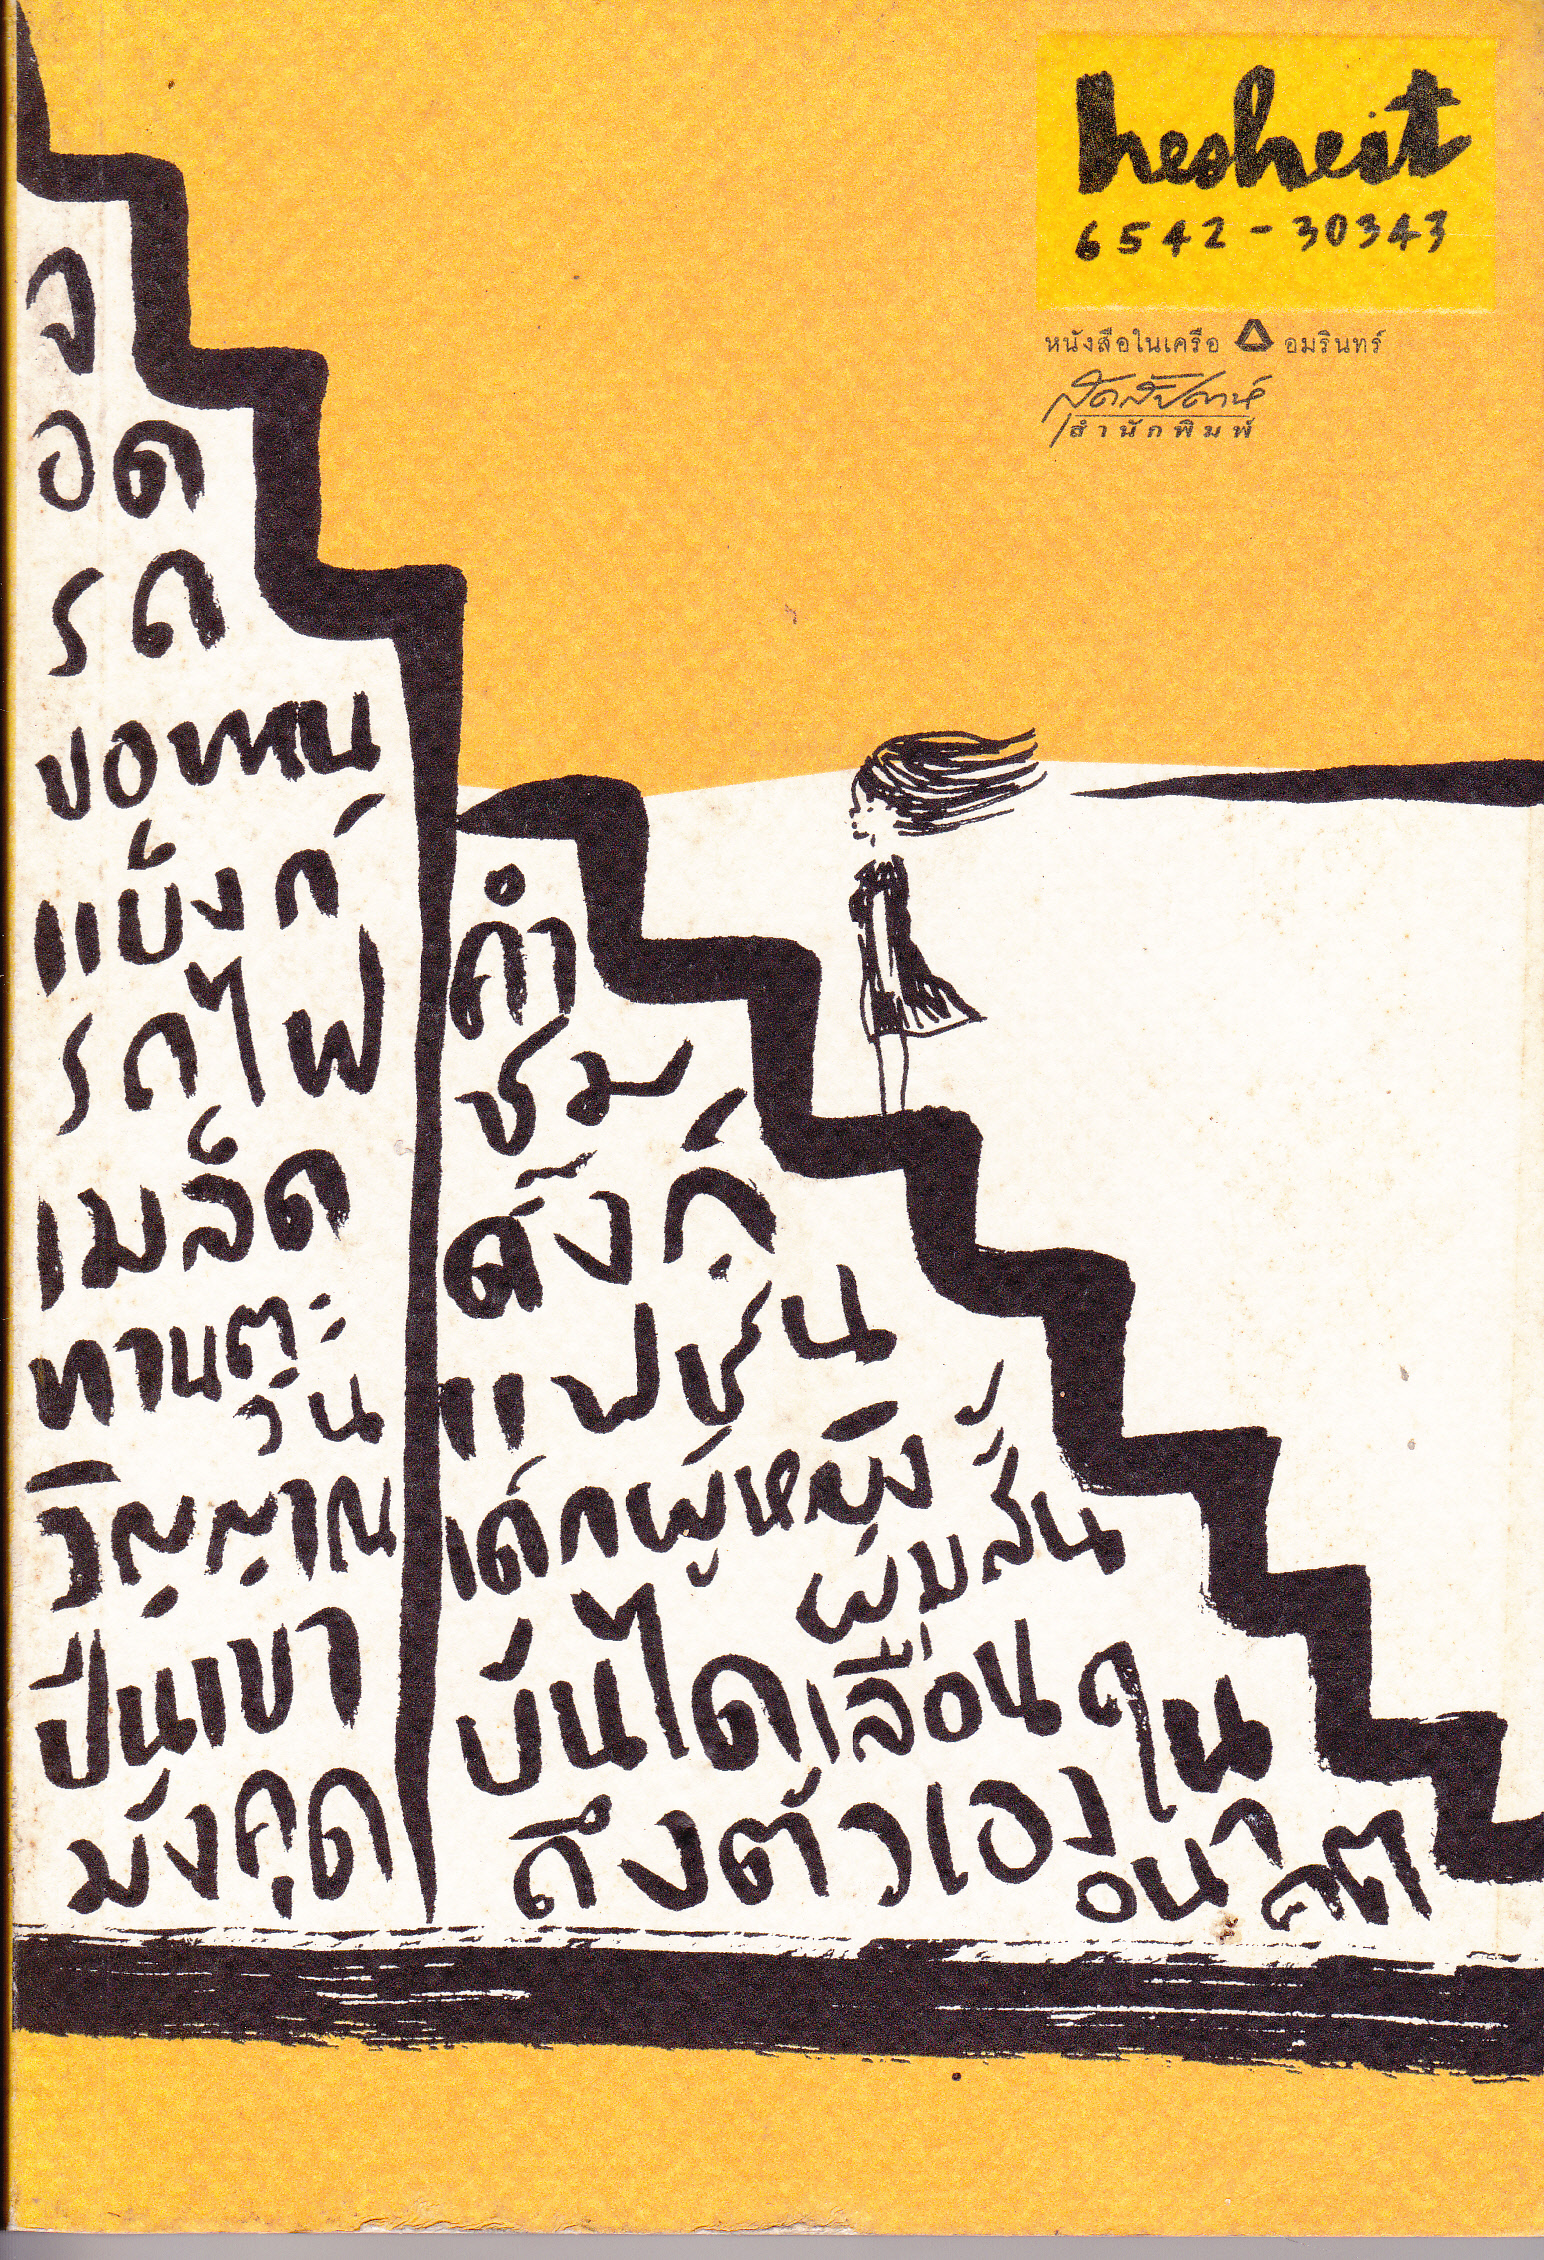 hesheit
6542-30343
หนังสือในเครือ อมรินทร์
สุดสัปดาห์
สำนักพิมพ์
จ
อด
รถ
ขอทาน
แบ้งก์
รถไฟ
เมล็ด
ทานตะ
วัน
วิญญาณ
ปีนเขา
มังคุด
คำ
ชม
ตังก์
แฟชั่น
เด็กผู้หญิง
ผมสั้น
บันไดเลื่อน
ถึงตัวเอง
ใน
อนาคต